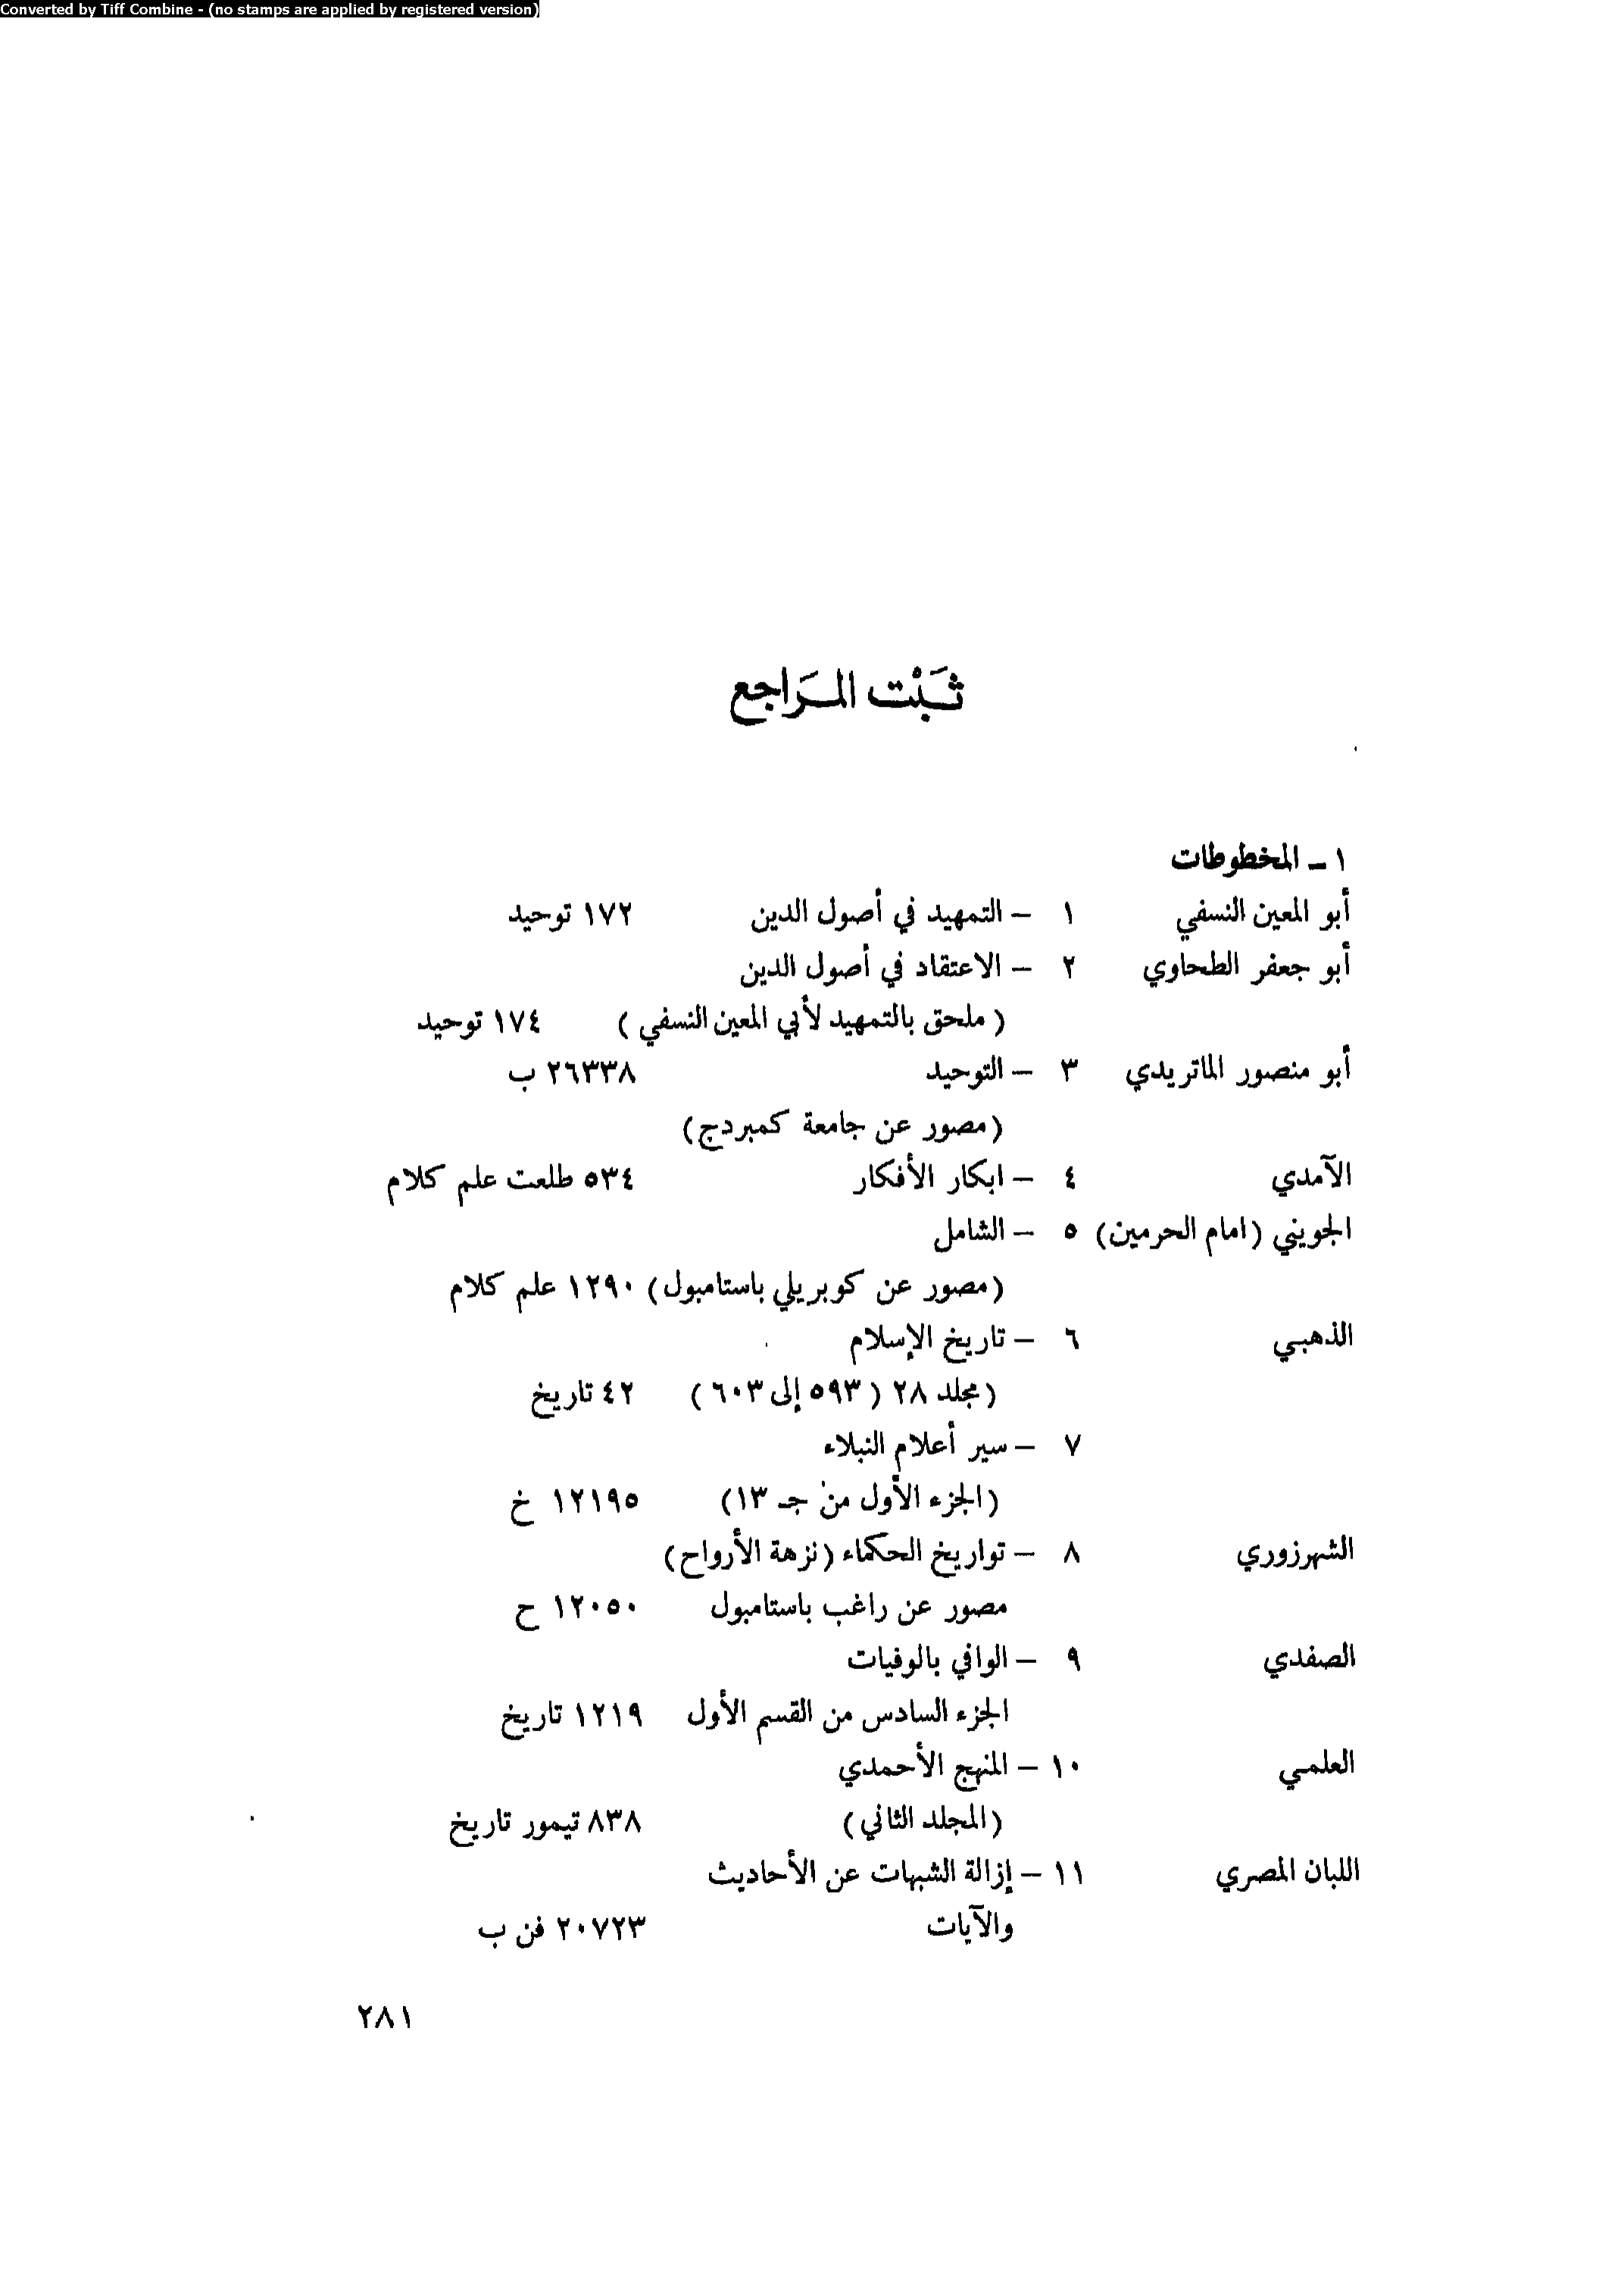 Converted by Tiff Combine - (no stamps are applied by registered version)
ثَبْت المَراجع
١ – المخطوطات
أبو المعين النسفي ١ – التمهيد في أصول الدين ١٧٢ توحيد
أبو جعفر الطحاوي ٢ – الاعتقاد في أصول الدين
( ملحق بالتمهيد لأبي المعين النسفي ) ١٧٤ توحيد
أبو منصور الماتريدي ٣ – التوحيد ٢٦٣٣٨ ب
(مصور عن جامعة كمبردج)
الآمدي ٤ – ابكار الأفكار ٥٣٤ طلعت علم كلام
الجويني (امام الحرمين) ٥ – الشامل
(مصور عن كوبريلي باستامبول) ١٢٩٠ علم كلام
الذهبي ٦ – تاريخ الإسلام
(مجلد ٢٨ ( ٥٩٣ إلى ٦٠٣ ) ٤٢ تاريخ
٧ – سير أعلام النبلاء
(الجزء الأول من جـ ١٣) ١٢١٩٥ خ
الشهرزوري ٨ – تواريخ الحكماء (نزهة الأرواح)
مصور عن راغب باستامبول ١٢٠٥٠ ح
الصفدي ٩ – الوافي بالوفيات
الجزء السادس من القسم الأول ١٢١٩ تاريخ
العلمي ١٠ – المنهج الأحمدي
(المجلد الثاني) ٨٣٨ تيمور تاريخ
اللبان المصري ١١ – إزالة الشبهات عن الأحاديث
والآيات ٢٠٧٢٣ فن ب
٢٨١